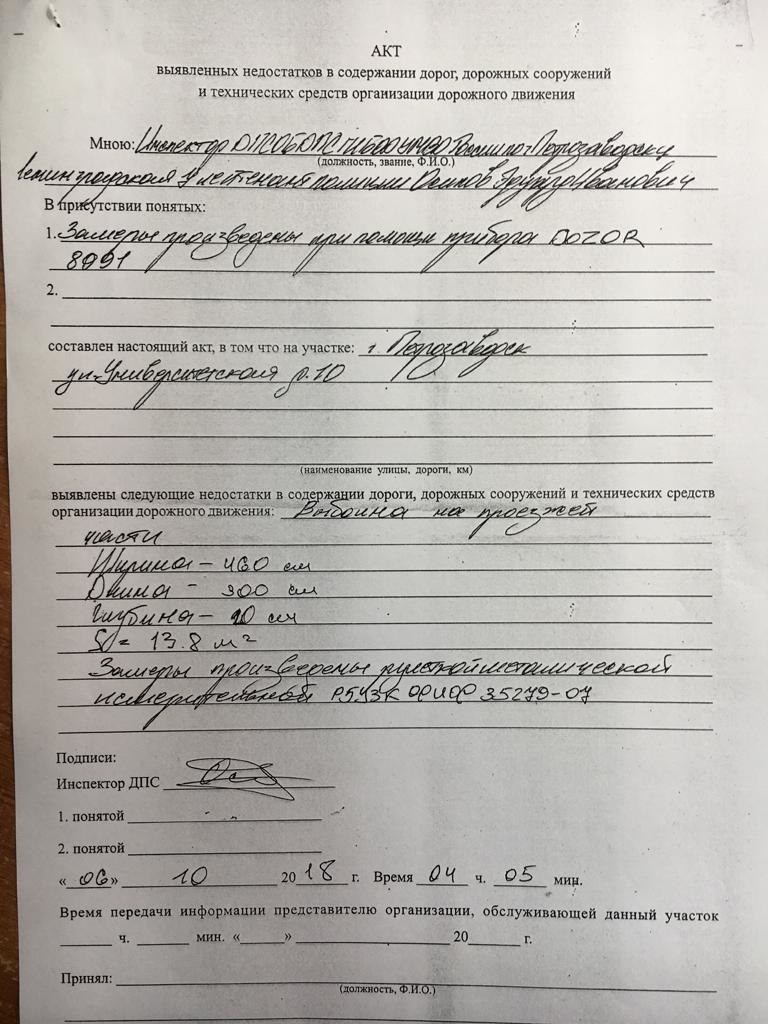 АКТ
выявленных недостатков в содержании дорог, дорожных сооружений
и технических средств организации дорожного движения
Мною: Инспектор
(должность, звание, Ф.И.О.)
лейтенант полиции Осипов Иванович
В присутствии понятых:
1. Замеры произведены при помощи прибора DOZOR
8991
2.
составлен настоящий акт, в том что на участке: г. Петрозаводск
ул. Университетская д. 10
(наименование улицы, дороги, км)
выявлены следующие недостатки в содержании дороги, дорожных сооружений и технических средств
организации дорожного движения: Выбоина на проезжей
части
Ширина – 460 см
Длина – 300 см
Глубина – 20 см
S = 13.8 м²
Замеры произведены рулеткой металической
измерительной Р5УЗК 35279-07
Подписи:
Инспектор ДПС
1. понятой
2. понятой
« 06 » 10 2018 г. Время 04 ч. 05 мин.
Время передачи информации представителю организации, обслуживающей данный участок
ч. мин. « » 20 г.
Принял:
(должность, Ф.И.О.)